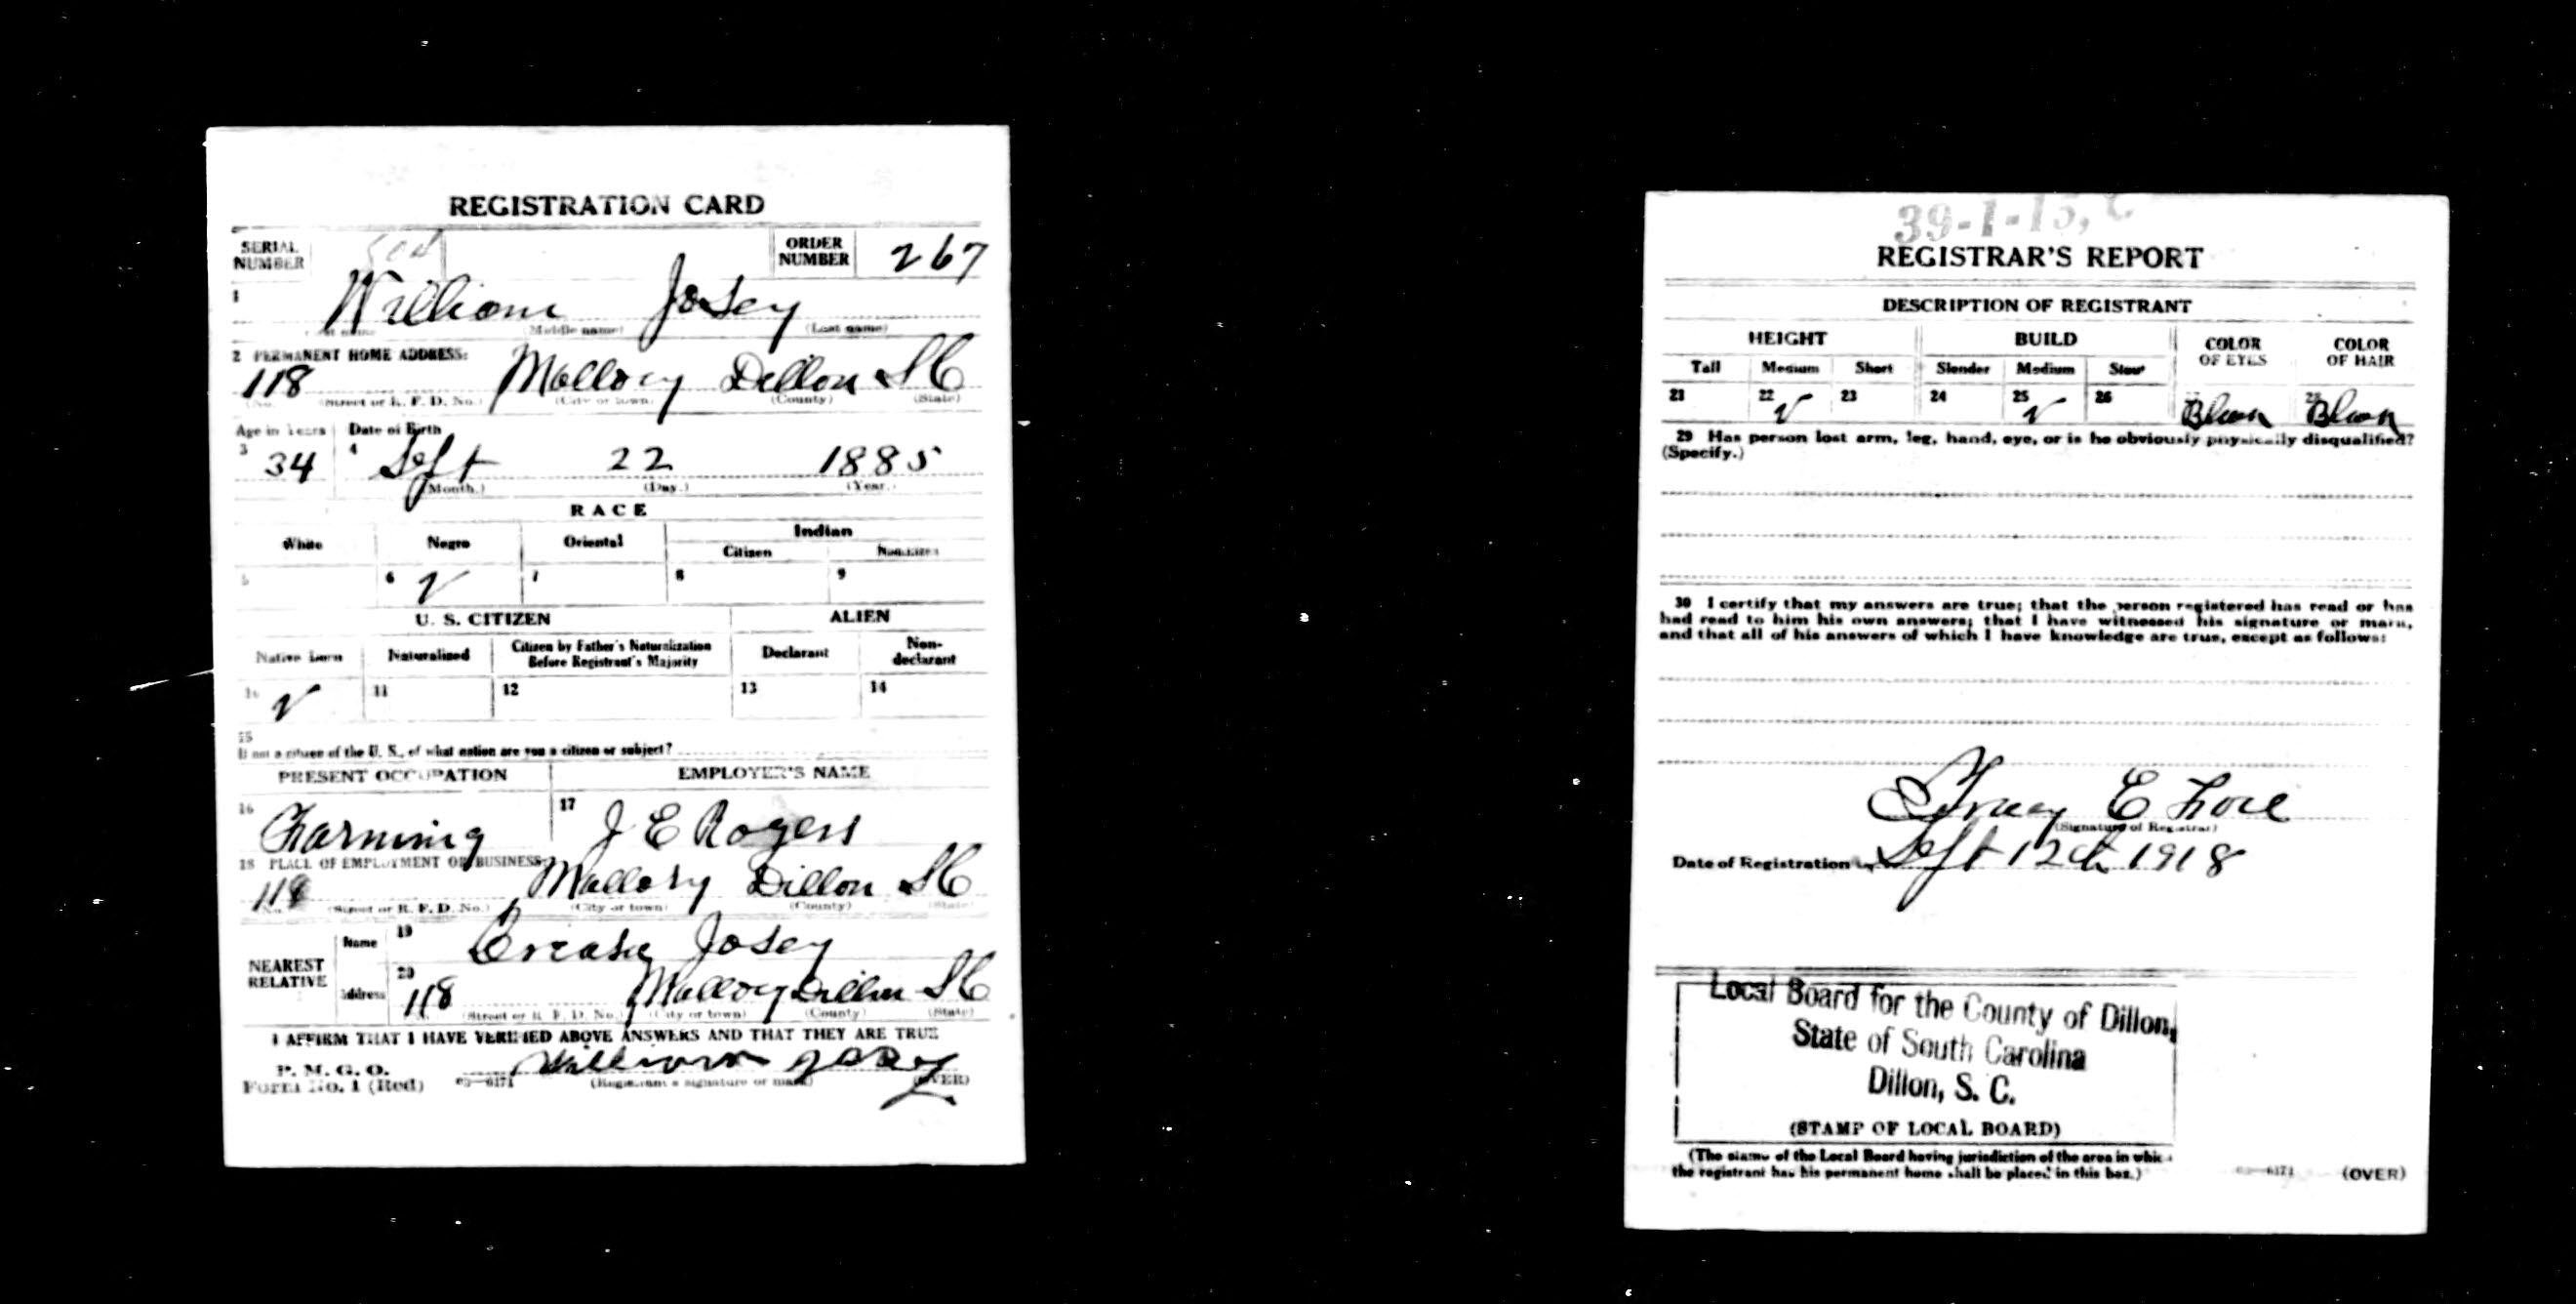 REGISTRATION CARD
SERIAL NUMBER
ORDER NUMBER 267
1 William Josey
(Middle name) (Last name)
2 PERMANENT HOME ADDRESS:
118 Mallory Dillon SC
(No.) (Street or R. F. D. No.) (City or town) (County) (State)
Age in Years Date of Birth
3 34 4 Sept 22 1885
(Month.) (Day.) (Year.)
RACE
White Negro Oriental Indian
Citizen Noncitizen
5 6 ✓ 7 8 9
U. S. CITIZEN ALIEN
Native Born Naturalized Citizen by Father's Naturalization Before Registrant's Majority Declarant Non-declarant
10 ✓ 11 12 13 14
15
If not a citizen of the U. S., of what nation are you a citizen or subject?
PRESENT OCCUPATION EMPLOYER'S NAME
16 Farming 17 J E Rogers
18 PLACE OF EMPLOYMENT OR BUSINESS:
118 Mallory Dillon SC
(No.) (Street or R. F. D. No.) (City or town) (County) (State)
NEAREST RELATIVE
Name 19 Josey
Address 20 118 Mallory Dillon SC
(Street or R. F. D. No.) (City or town) (County) (State)
I AFFIRM THAT I HAVE VERIFIED ABOVE ANSWERS AND THAT THEY ARE TRUE
P. M. G. O.
Form No. 1 (Red) 03—6171 William Josey
(Registrant's signature or mark) (OVER)
39-1-15, C
REGISTRAR'S REPORT
DESCRIPTION OF REGISTRANT
HEIGHT BUILD COLOR OF EYES COLOR OF HAIR
Tall Medium Short Slender Medium Stout
21 22 ✓ 23 24 25 ✓ 26 28
29 Has person lost arm, leg, hand, eye, or is he obviously physically disqualified?
(Specify.)
30 I certify that my answers are true; that the person registered has read or has
had read to him his own answers; that I have witnessed his signature or mark,
and that all of his answers of which I have knowledge are true, except as follows:
E
(Signature of Registrar)
Date of Registration Sept 12th 1918
Local Board for the County of Dillon,
State of South Carolina
Dillon, S. C.
(STAMP OF LOCAL BOARD)
(The stamp of the Local Board having jurisdiction of the area in which
the registrant has his permanent home shall be placed in this box.)
03—6171 (OVER)